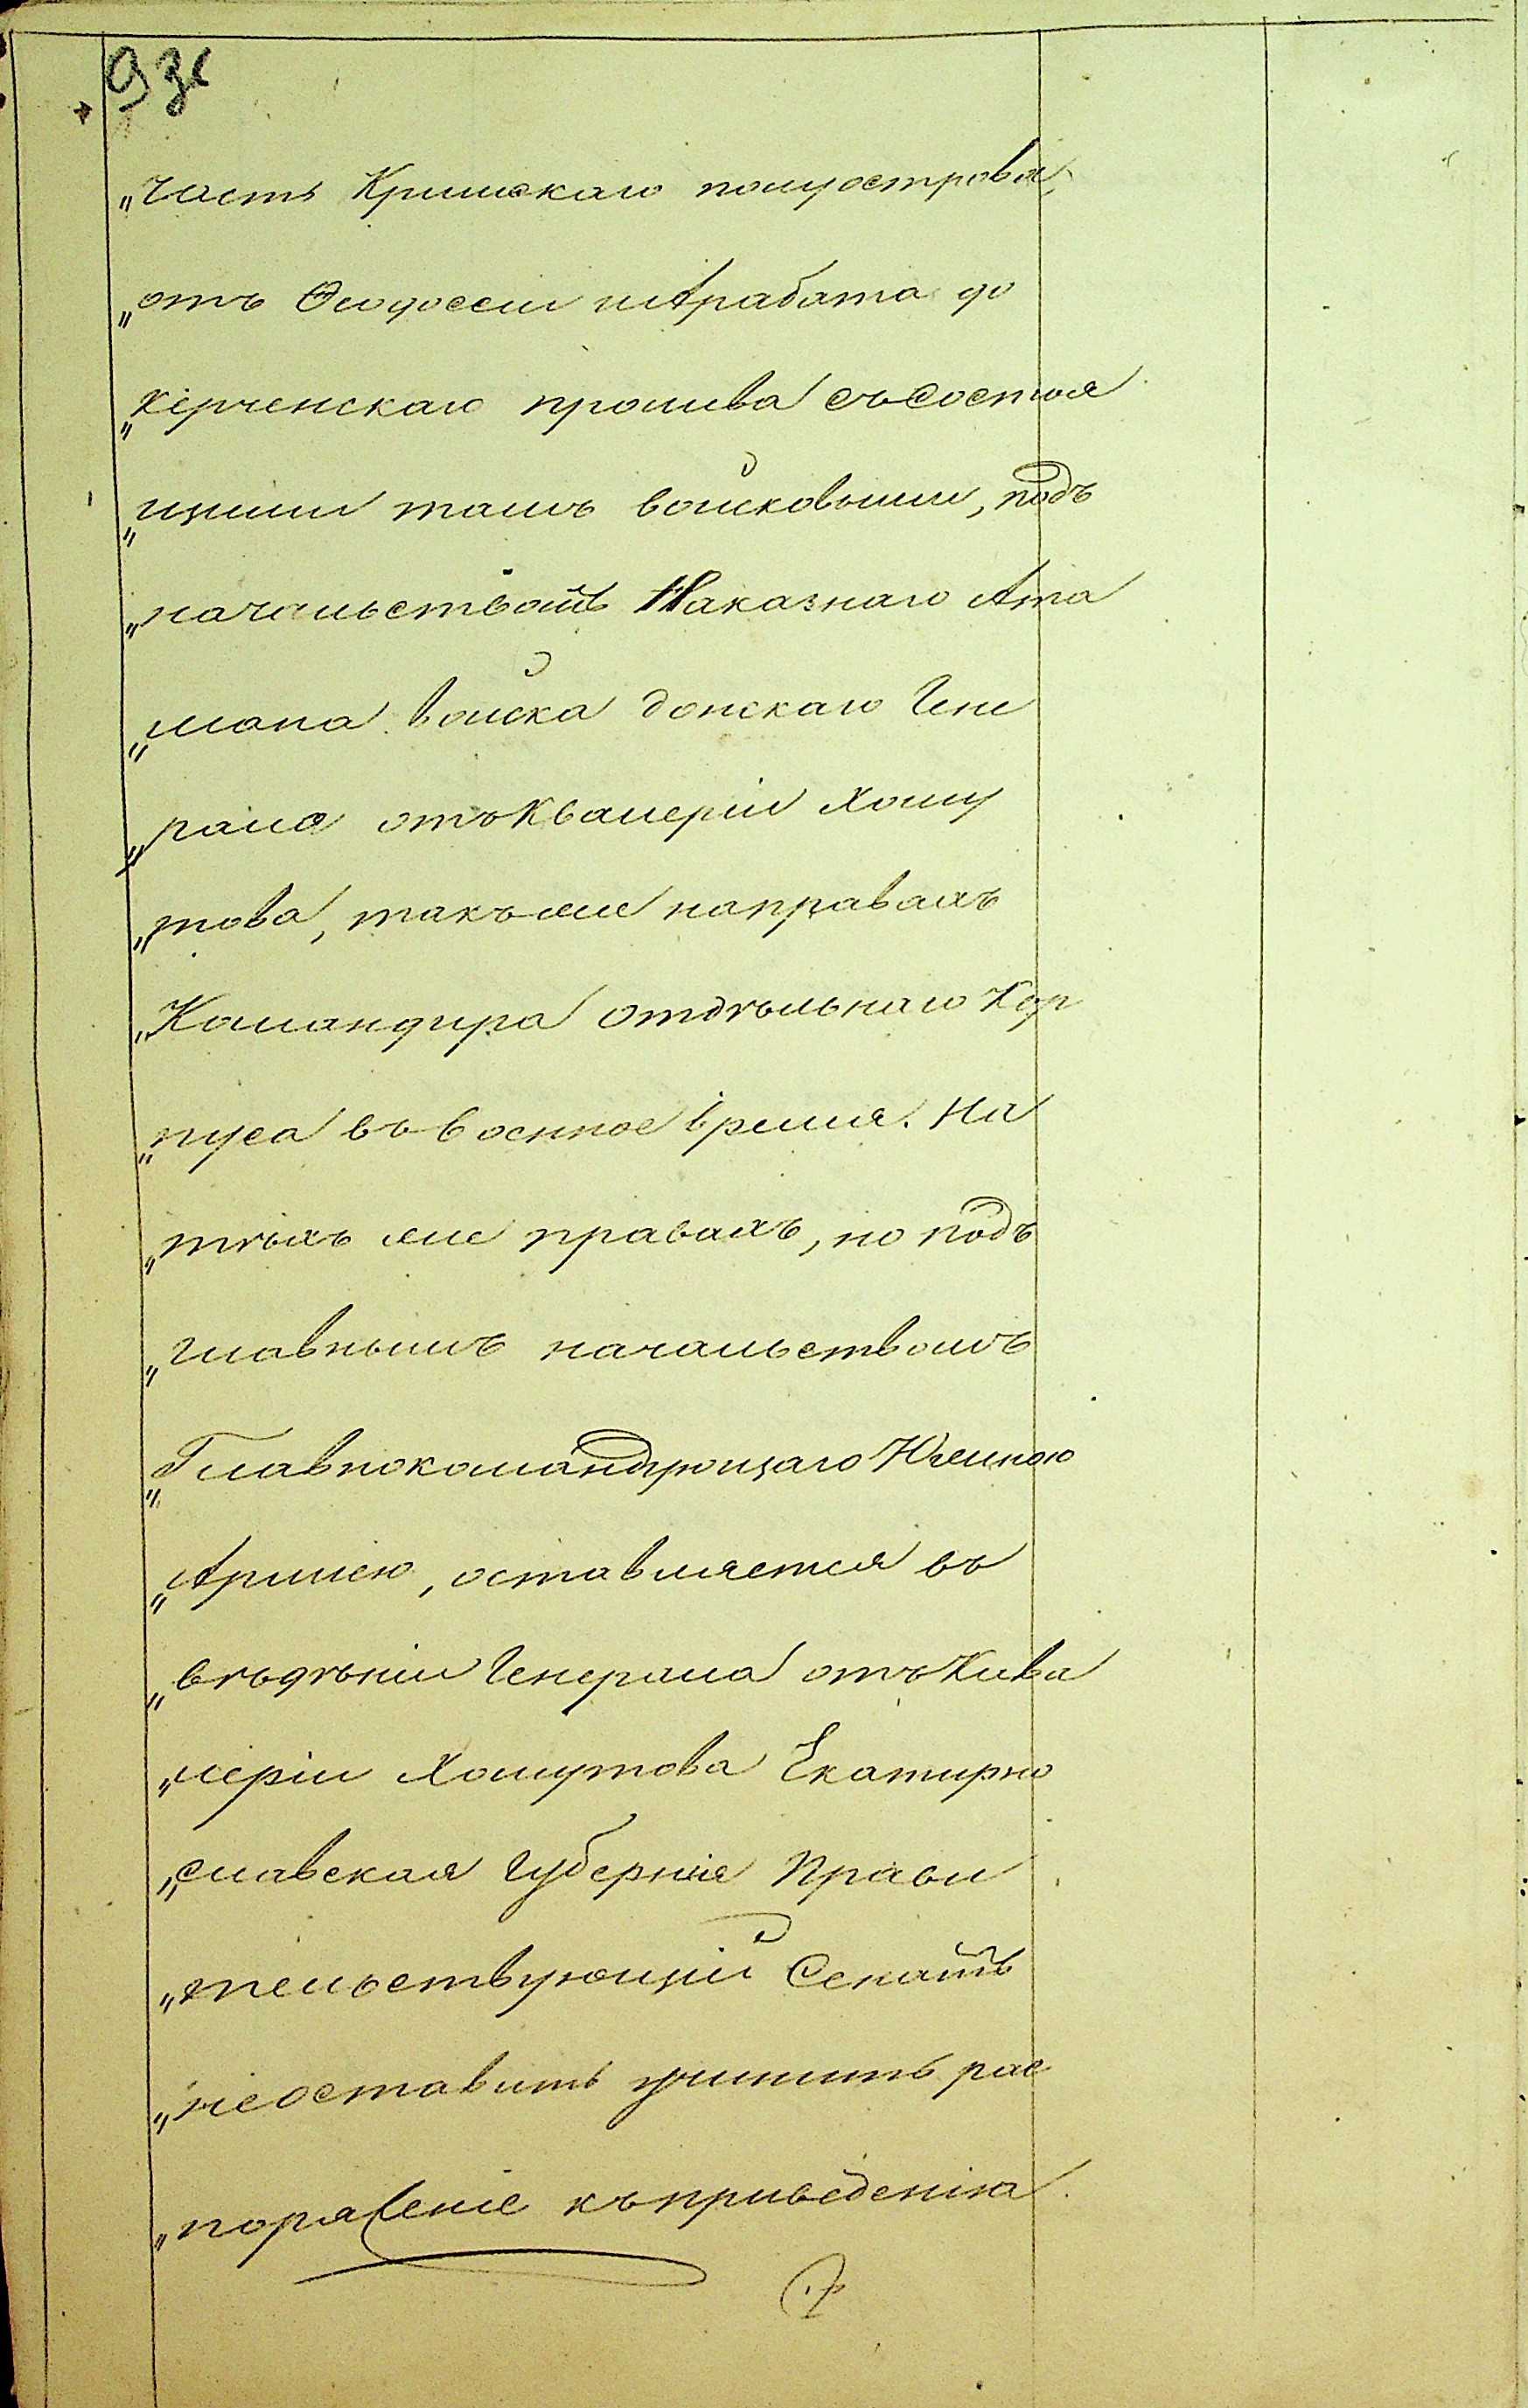 93
„часть Крымскаго полуострова,
„отъ Ѳеодоссіи и Арабата до
„Керченскаго пролива съ состоя
„щими тамъ войсковыми, подъ
„начальствомъ Наказнаго Ата
„мана войска донскаго Гене
„рала отъ Кавалеріи Хому
„това, такъ же на правахъ
„Командира Отдѣльнаго Кор
„пуса въ военное время. На
„тѣхъ же правахъ, но подъ
„главнымъ начальствомъ
„Главнокомандующаго Южною
„Арміею, оставляется въ
„вѣдѣніи Генерала отъ Кава
„леріи Хомутова Екатерино
„славская Губернія Прави
„тельствующій Сенатъ
„не оставитъ учинить рас
„поряженіе къ приведенію